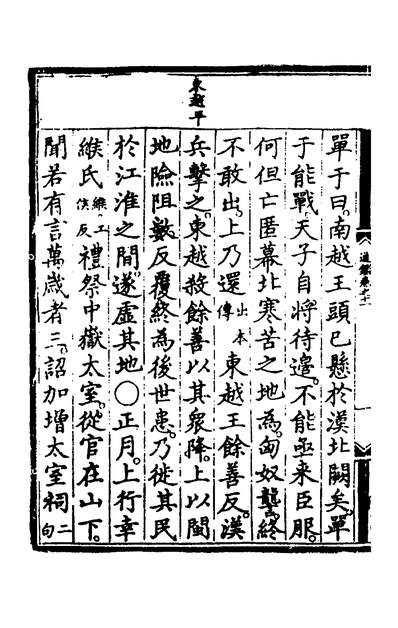 東越平
單于曰。南越王頭已懸於漢北闕矣。單
于能戰。天子自將待邊。不能亟來臣服。
何但亡匿幕北寒苦之地為。匈奴讋。終
不敢出。上乃還出本傳東越王餘善反。漢
兵擊之。東越殺餘善以其衆降。上以閩
地險阻。數反覆。終為後世患。乃徙其民
於江淮之間。遂虛其地〇正月。上行幸
緱氏緱工侯反禮祭中嶽太室。從官在山下。
聞若有言萬歲者三。詔加增太室祠二句